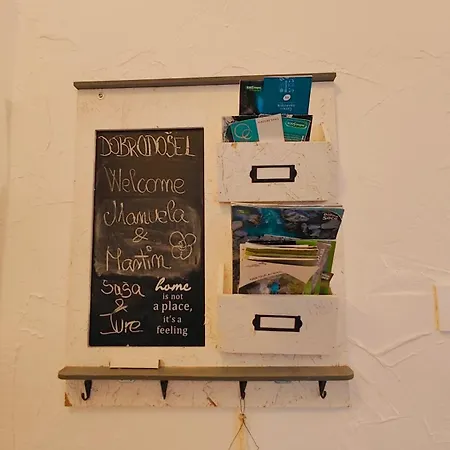 DOBRODOŠEL
Welcome
Manuela
&
Martin
Saša
&
Jure
home
is not
a place,
it's a
feeling